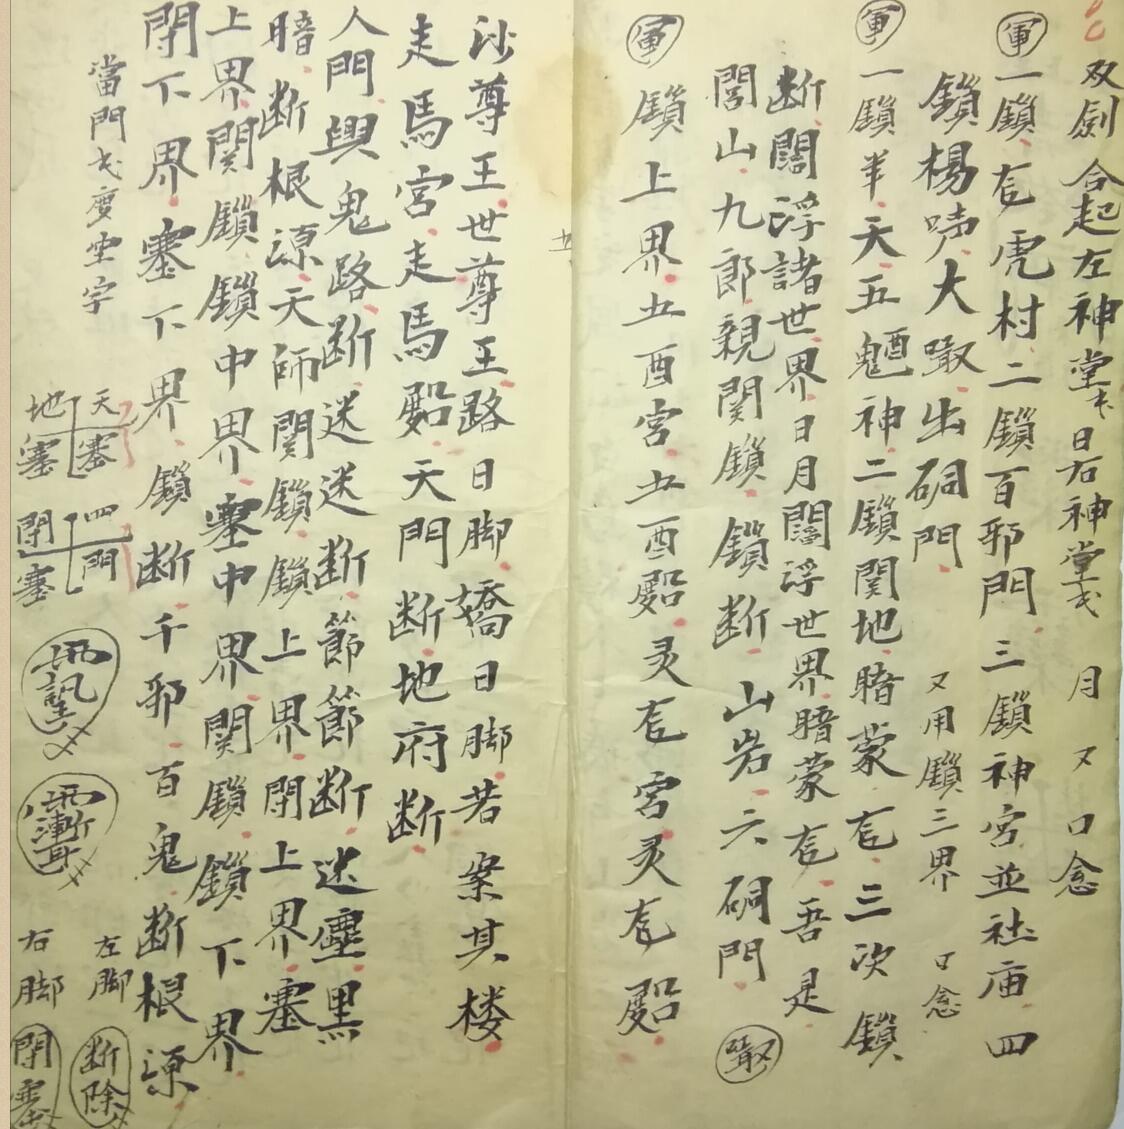 双劍合起左神堂弋日右神堂弋 月 又 口念
軍 一鎖𠅘虎村二鎖百邪門三鎖神宮並社庙四
鎖楊哮大㘝出硐門 又用鎖三界 口念
軍 一鎖半天五魁神二鎖関地暗蒙𠅘三次鎖
断闊浮諸世界日月闊浮世界暗蒙𠅘吾是
閭山九郎親関鎖鎖断山岩六硐門
軍 鎖上界五酉宮五酉殿灵𠅘宮灵𠅘殿
沙尊王世尊王路日脚嬌日脚若案其楼
走馬宮走馬殿天門断地府断
人門與鬼路断迷迷断節節断迷塵黑
暗断根源天師関鎖鎖上界閉上界塞
上界関鎖鎖中界塞中界関鎖鎖下界
閉下界塞下界鎖断千邪百鬼断根源
當門弋度坐字
天塞 四門 左脚 断除
地塞 閉塞 右脚 閉塞